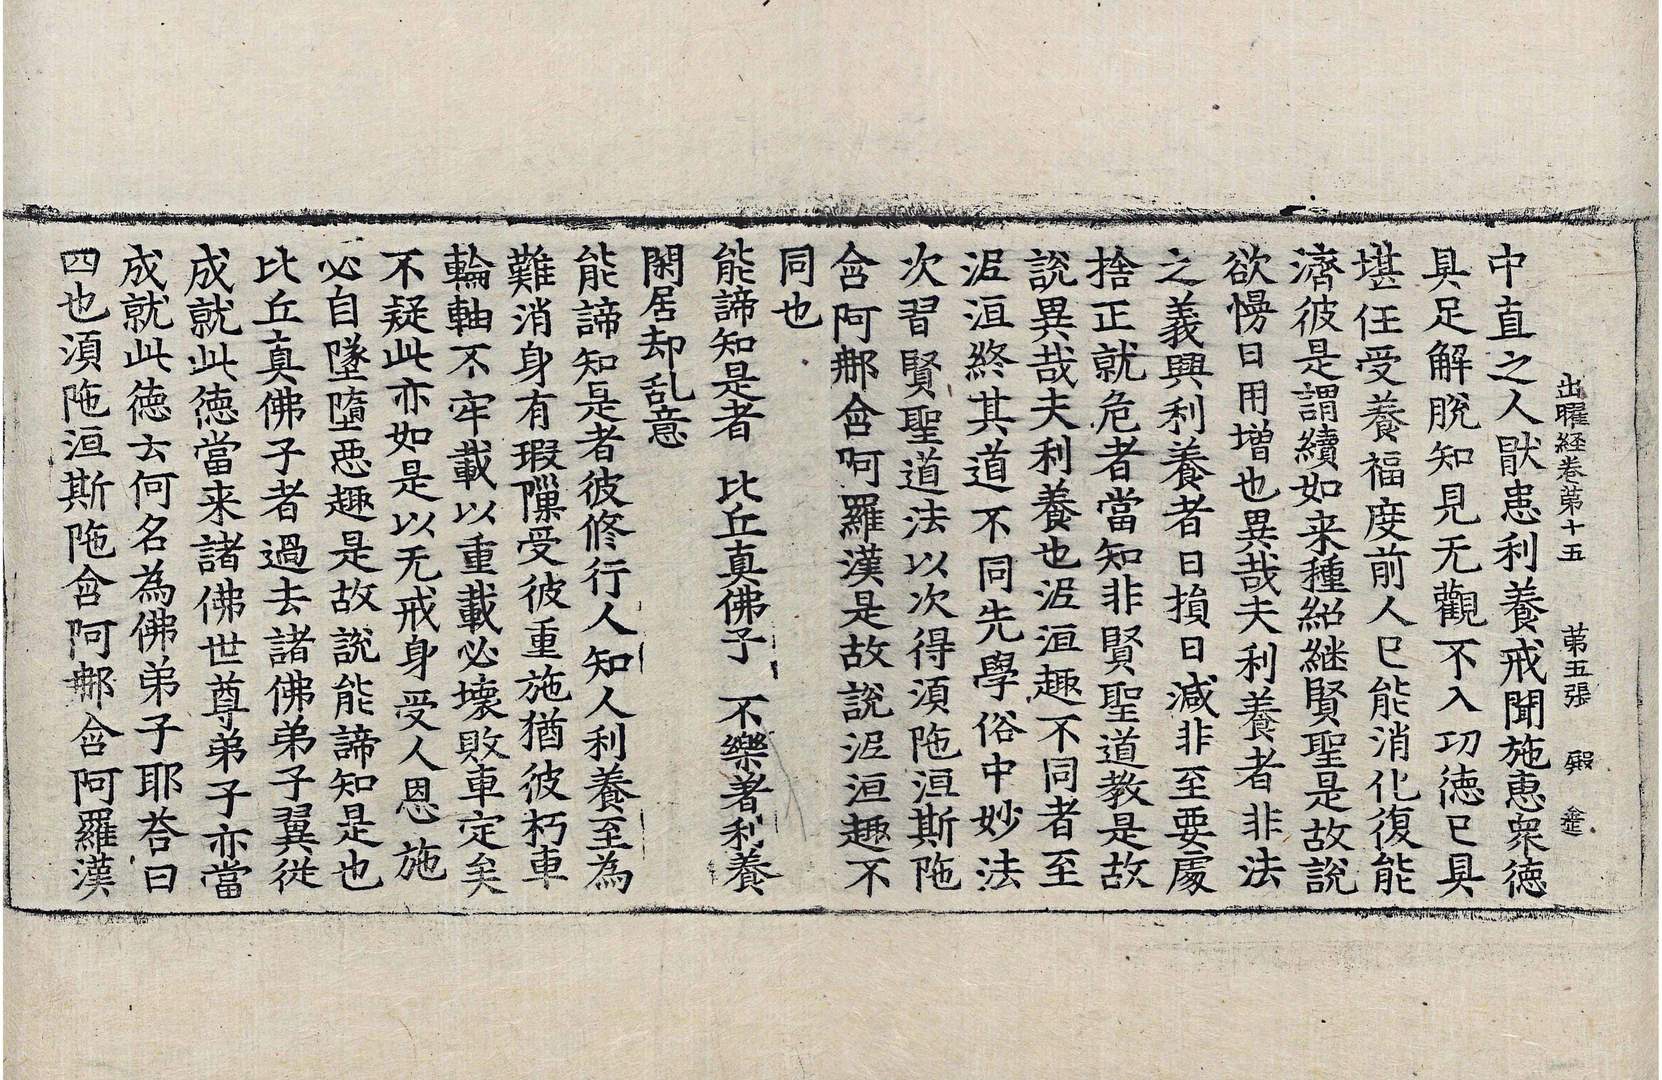 出曜経卷第十五 第五張 殿
中直之人猒患利養戒聞施惠衆徳
具足解脫知見无觀不入功徳已具
堪任受養福度前人已能消化復能
濟彼是謂續如来種紹継賢聖是故說
欲慢日用增也異哉夫利養者非法
之義興利養者日損日減非至要處
捨正就危者當知非賢聖道教是故
說異哉夫利養也泥洹趣不同者至
泥洹終其道不同先學俗中妙法
次習賢聖道法以次得湏陁洹斯陁
含阿那含阿羅漢是故說泥洹趣不
同也
能諦知是者 比丘真佛子 不樂著利養
閑居却乱意
能諦知是者彼修行人知人利養至為
難消身有瑕隟受彼重施猶彼朽車
輪軸不牢載以重載必壞敗車定矣
不疑此亦如是以无戒身受人恩施
必自墜墮惡趣是故說能諦知是也
比丘真佛子者過去諸佛弟子翼從
成就此徳當来諸佛世尊弟子亦當
成就此徳去何名為佛弟子耶荅曰
四也湏陁洹斯陁含阿那含阿羅漢